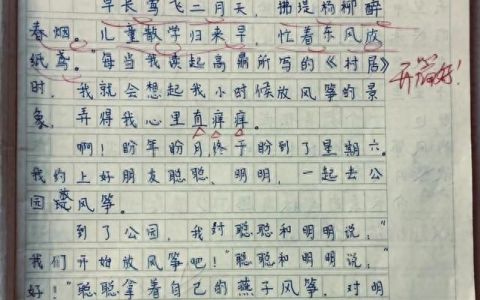 草长莺飞二月天，拂堤杨柳醉
春烟。儿童散学归来早，忙着东风放
纸鸢。"每当我读起高鼎所写的《村居》
时，我就会想起我小时候放风筝的景
象，弄得我心里直痒痒。
啊！盼年盼月，终于盼到了星期六。
我约上好朋友聪聪、明明，一起去公
园放风筝。
到了公园，我对聪聪和明明说："
我们开始放风筝吧！"聪聪和明明说："
好！"聪聪拿着自己的燕子风筝，对明
开篇好！